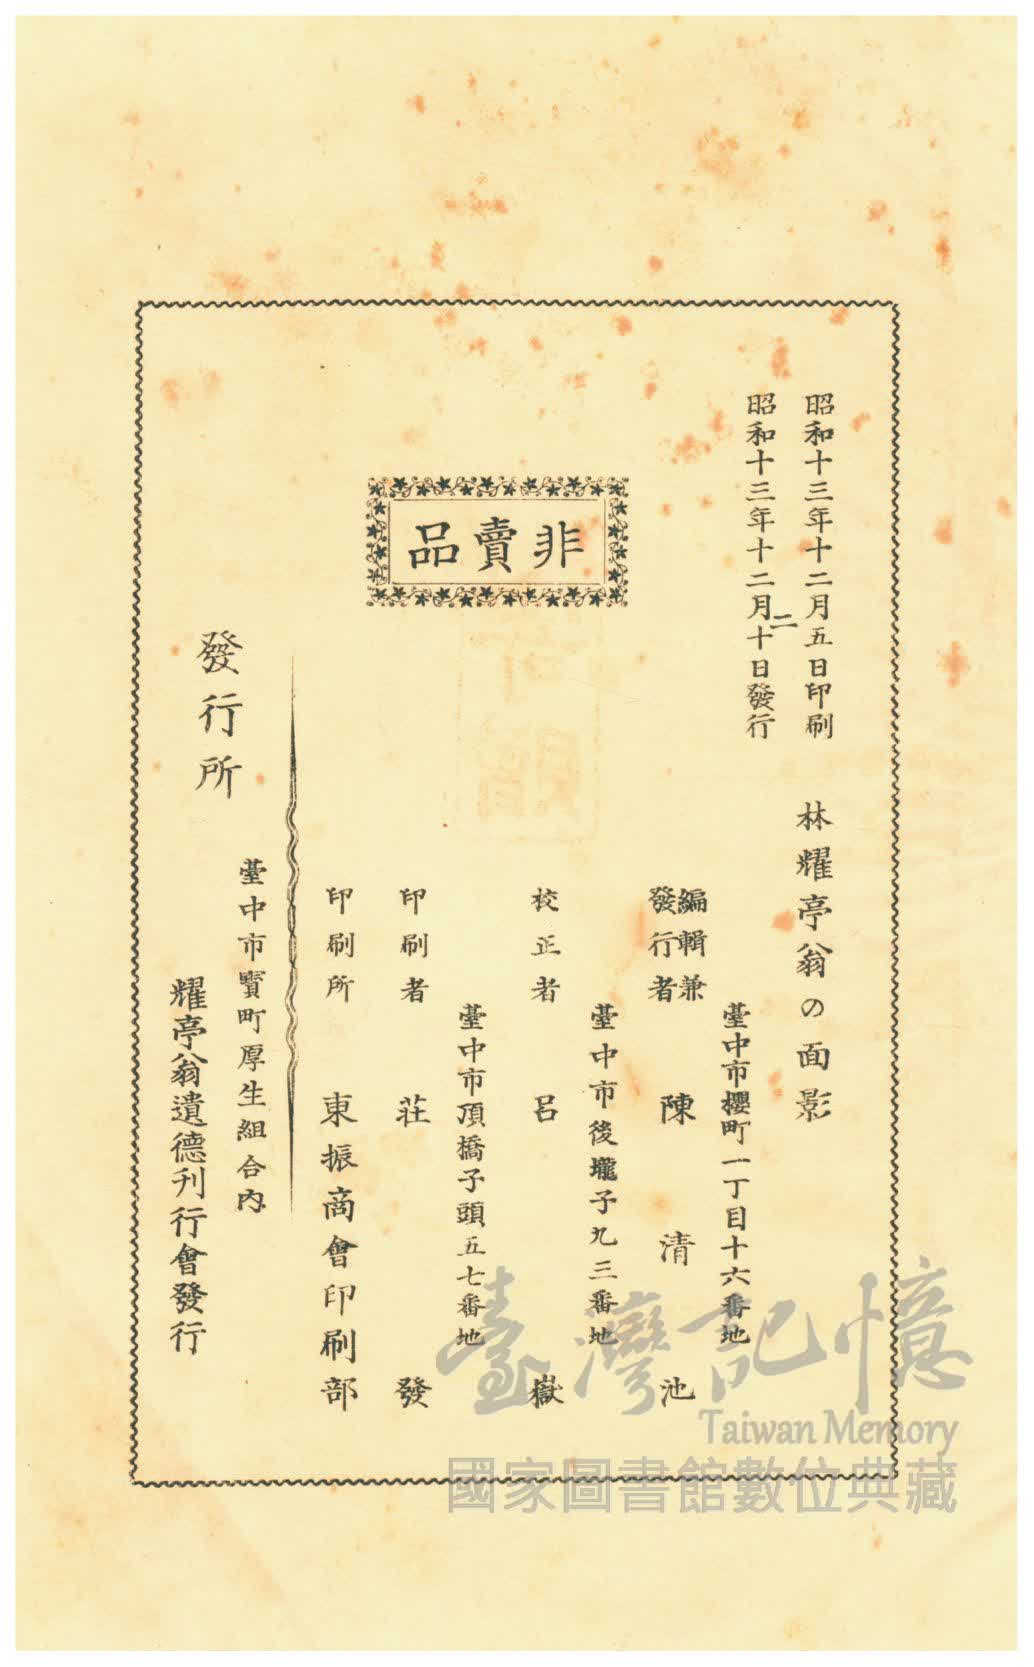 昭和十三年十二月五日印刷
昭和十三年十二月二十日發行
林耀亭翁の面影
非賣品
臺中市櫻町一丁目十六番地
編輯兼
發行者 陳清池
臺中市後壠子九三番地
校正者 呂嶽
臺中市頂橋子頭五七番地
印刷者 莊發
印刷所 東振商會印刷部
發行所
臺中市寳町厚生組合內
耀亭翁遺德刊行會發行
臺灣記憶
Taiwan Memory
國家圖書館數位典藏